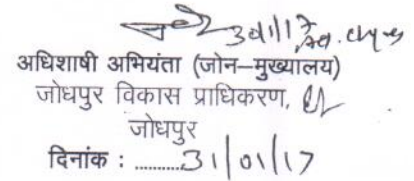 अधिशाषी अभियंता (जोन–मुख्यालय)
जोधपुर विकास प्राधिकरण,
जोधपुर
दिनांक : ..........31/01/17